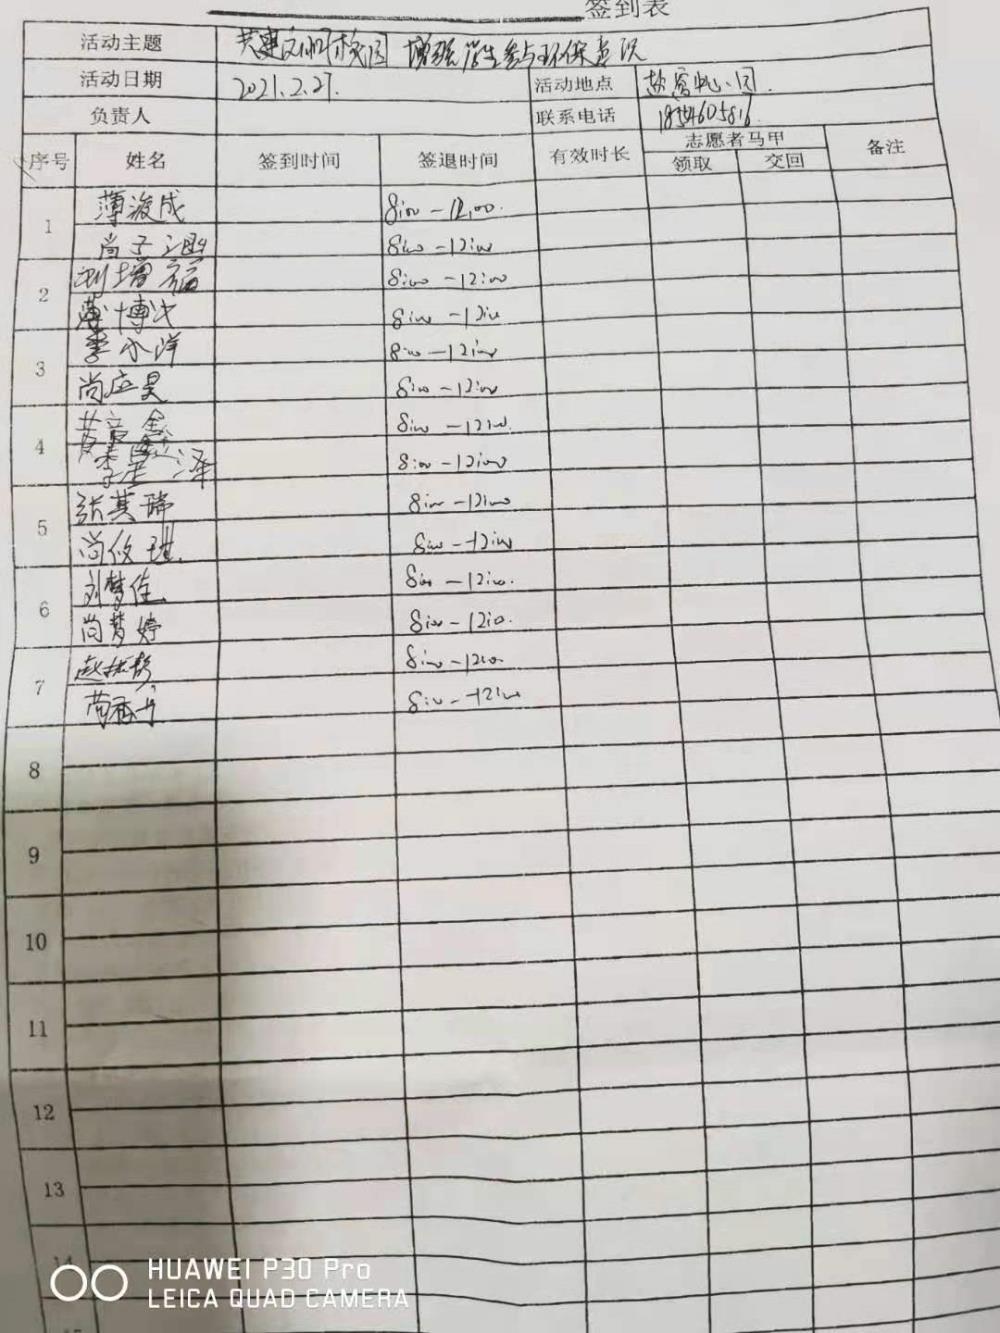 签到表
活动主题 共建文明校园 增强学生参与环保意识
活动日期 2021.2.27. 活动地点 盐窝中心
负责人 联系电话 18554605816.
序号 姓名 签到时间 签退时间 有效时长 志愿者马甲 备注
领取 交回
1 薄浚成 8:00-12:00.
尚子 8:00-12:00
2 刘增福 8:00-12:00
薄博 8:00-12:00
3 李小洋 8:00-12:00
尚应昊 8:00-12:00
4 黄 鑫 8:00-12:00.
李 泽 8:00-12:00
5 张其瑞 8:00-12:00
尚俊琪. 8:00-12:00
6 刘梦佳. 8:00-12:00.
尚梦婷 8:00-12:0.
7 赵 8:00-12:0.
8:00-12:00
8
9
10
11
12
13
14
15
HUAWEI P30 Pro
LEICA QUAD CAMERA